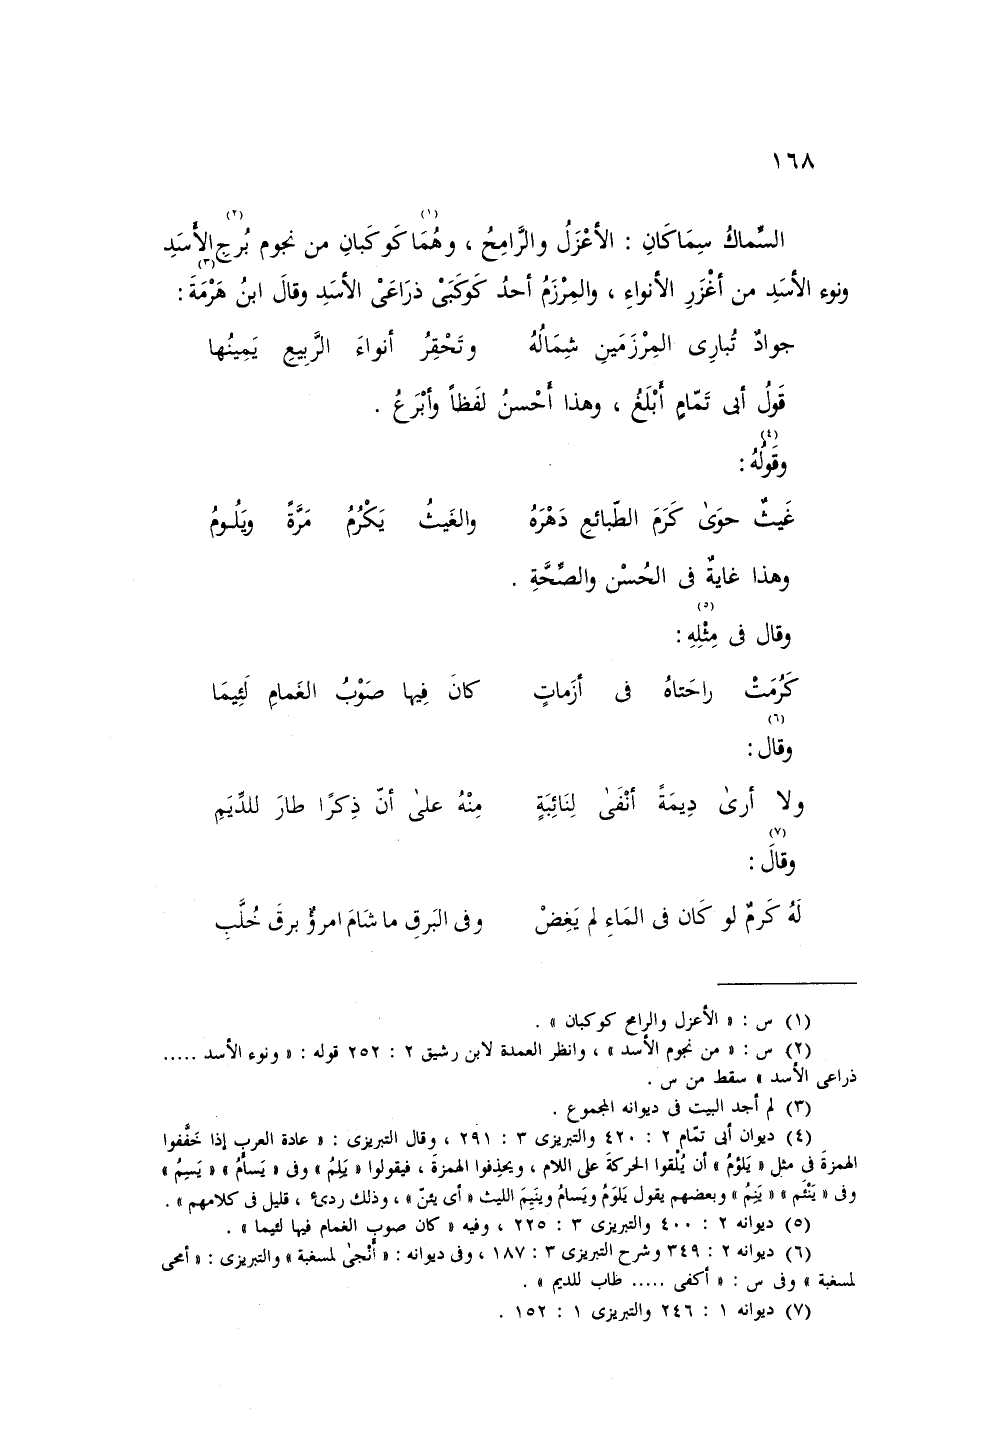 ١٦٨
السِّماكُ سِمَاكَانِ : الأعْزَلُ والرَّامِحُ ، وهُمَا(١) كَوكَبانِ من نجوم بُرجِ(٢) الأَسَدِ
ونوء الأسَدِ من أغْزَرِ الأنواءِ ، والمِرْزَمُ أحدُ كَوكَبَىْ ذرَاعَىْ الأسَدِ وقالَ ابنُ هَرْمَةَ(٣) :
جوادٌ تُبارِى المِرْزَمَينِ شِمَالُهُ وتَحْقِرُ أنواءَ الرَّبِيعِ يَمِينُها
قَولُ أبى تَمّامٍ أَبْلَغُ ، وهذا أَحْسنُ لفَظاً وأبْرَعُ .
وقَولُهُ(٤) :
غَيثٌ حوَىٰ كَرَمَ الطّبائعِ دَهْرَهُ والغَيثُ يَكْرُمُ مَرَّةً ويَلُـومُ
وهذا غايةٌ فى الحُسْن والصِّحَّةِ .
وقال فى مِثْلِهِ(٥) :
كَرُمَتْ راحَتاهُ فى أزَماتٍ كانَ فِيها صَوْبُ الغَمامِ لَئِيمَا
وقال(٦) :
ولا أرىٰ دِيمَةً أنْفَىٰ لِنَائِبَةٍ مِنْهُ علىٰ أنّ ذِكرًا طارَ للدِّيَمِ
وقالَ(٧) :
لَهُ كَرمٌ لو كَان فى المَاءِ لم يَغِضْ وفى البَرقِ ما شَامَ امرؤٌ برقَ خُلَّبِ
(١) س : « الأعزل والرامح كوكبان » .
(٢) س : « من نجوم الأسد » ، وانظر العمدة لابن رشيق ٢ : ٢٥٢ قوله : « ونوء الأسد .....
ذراعى الأسد » سقط من س .
(٣) لم أجد البيت فى ديوانه المجموع .
(٤) ديوان أبى تمّام ٢ : ٤٢٠ والتبريزى ٣ : ٢٩١ ، وقال التبريزى : « عادة العرب إذا خَفَّفوا
الهمزةَ فى مثل « يَلؤمُ » أن يُلْقوا الحركةَ على اللام ، ويحذِفوا الهمزةَ ، فيقولوا « يَلِمُ » وفى « يَسأَمُ » « يَسِمُ »
وفى « يَنْئم » « يَنِمُ » وبعضهم يقول يَلوَمُ ويَسامُ وينَيِمَ الليث « أى يئنّ » ، وذلك ردئ ، قليل فى كلامهم » .
(٥) ديوانه ٢ : ٤٠٠ والتبريزى ٣ : ٢٢٥ ، وفيه « كان صوب الغمام فيها لئيما » .
(٦) ديوانه ٢ : ٣٤٩ وشرح التبريزى ٣ : ١٨٧ ، وفى ديوانه : « أَنْجىٰ لمسغبة » والتبريزى : « أمحى
لمسغبة » وفى س : « أكفى ..... طاب للديم » .
(٧) ديوانه ١ : ٢٤٦ والتبريزى ١ : ١٥٢ .